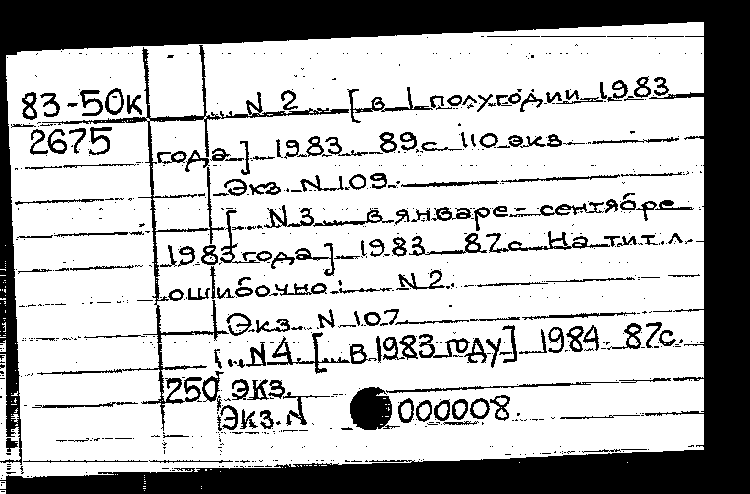 83-50к ... N 2 ... [в 1 полугодии 1983
2675 года] 1983. 89с. 110 экз
Экз. N 109.
[... N 3 ... в январе - сентябре
1983 года] 1983 87с. На тит. л.
ошибочно: ... N 2.
Экз. N 107.
... N 4. [... в 1983 году] 1984. 87с.
250 экз.
Экз. N 000008.